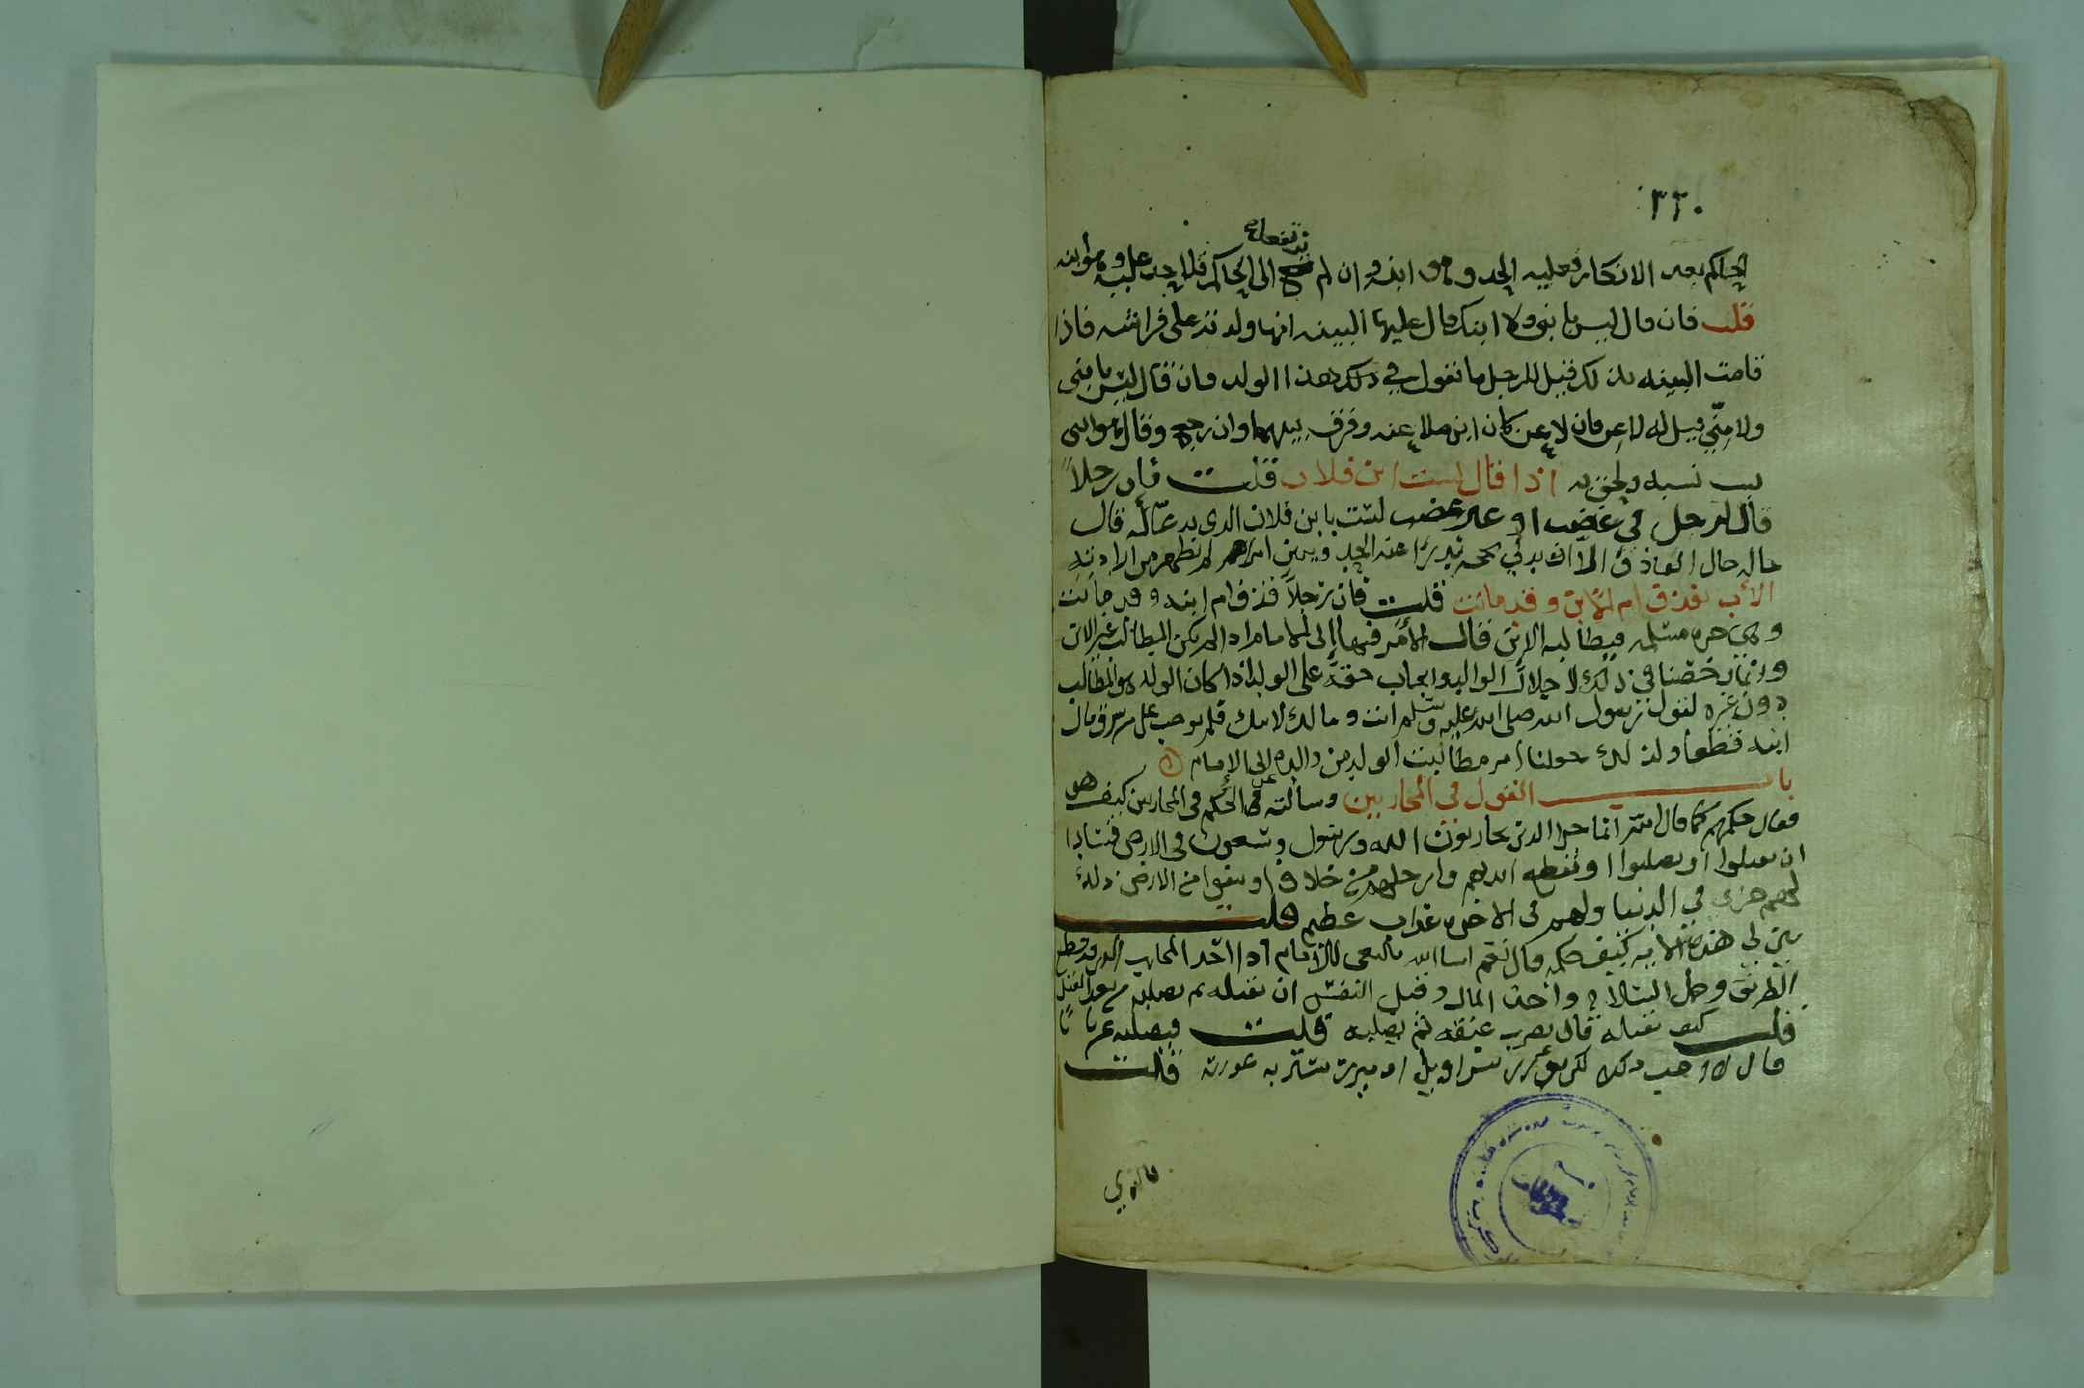 ٣٣٠
ترفعه
الحاكم بعد الانكار فعليه الحد وهو ابنه وان لم الى الحاكم فلا حد عليه وهو ابنه
قلت فان قال ليس بابني ولا ابنك قال عليها البينه انها ولدته على فراشه فاذا
قامت البينه بذلك قيل للرجل ما تقول في ذلك وهذا الولد فان قال ليس بابني
ولا مني قيل له لاعن فان لاعن كان ابن ملاعنه وفرق بينهما وان رجع وقال هو ابني
ثبت نسبه ولحق به اذا قال لست ابن فلان قلت فان رجلاً
قال لرجل في غضب او غير غضب لست بابن فلان الذي يدعّا له قال
حاله حال القاذف الّا ان يدلي بحجه تبريه عنه الحد ويبين امراً لم تظهر من ارادته
الأب يقذف ام الابن وقد ماتت قلت فان رجلاً قذف ام ابنه وقد ماتت
وهي حره مسلمه فيطالبه الابن قال الأمر فيها إلى الامام اذا لم يكن المطالب غير الابن
وانما رخصنا في ذلك لاجلال الوالد وايجاب حقه على الولد اذا كان الولد هو المطالب
دون غيره لقول رسول الله صلى الله عليه وسلم انت ومالك لابيك فلم يوجب على من سرق مال
ابنه قطعاً ولذلك حولنا امر مطالبت الولد من والده إلى الإمام
باب القول في المحاربين وسألته عن الحكم في المحاربين كيف هو
فقال حكمهم كما قال الله انما جزا الذين يحاربون الله ورسوله ويسعون في الارض فسادا
ان يقتلوا او يصلبوا او تقطع ايديهم وارجلهم من خلاف او ينفوا من الارض ذلك
لهم خزي في الدنيا ولهم في الاخره عذاب عظيم قلت
بين لي هذه الايه كيف حكمه قال نعم اما الله فالمعنى للامام اذا اخذ المحارب الذي قد قطع
الطريق وحمل السلاح واخذ المال وقتل النفس ان يقتله ثم يصلبه من بعد القتل
قلت كيف يقتله قال يضرب عنقه ثم يصلبه قلت فيصلبه عرياناً
قال لا احب ذلك لكن سراويل او تستر به عورته قلت